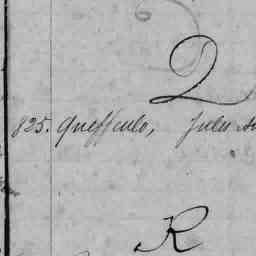 Q
825. Queffculo, Jules
R